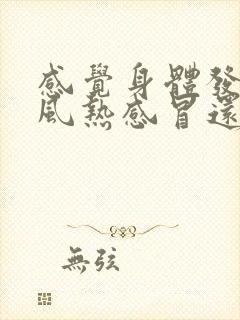 感覺身體發
風熱感冒還
無弦